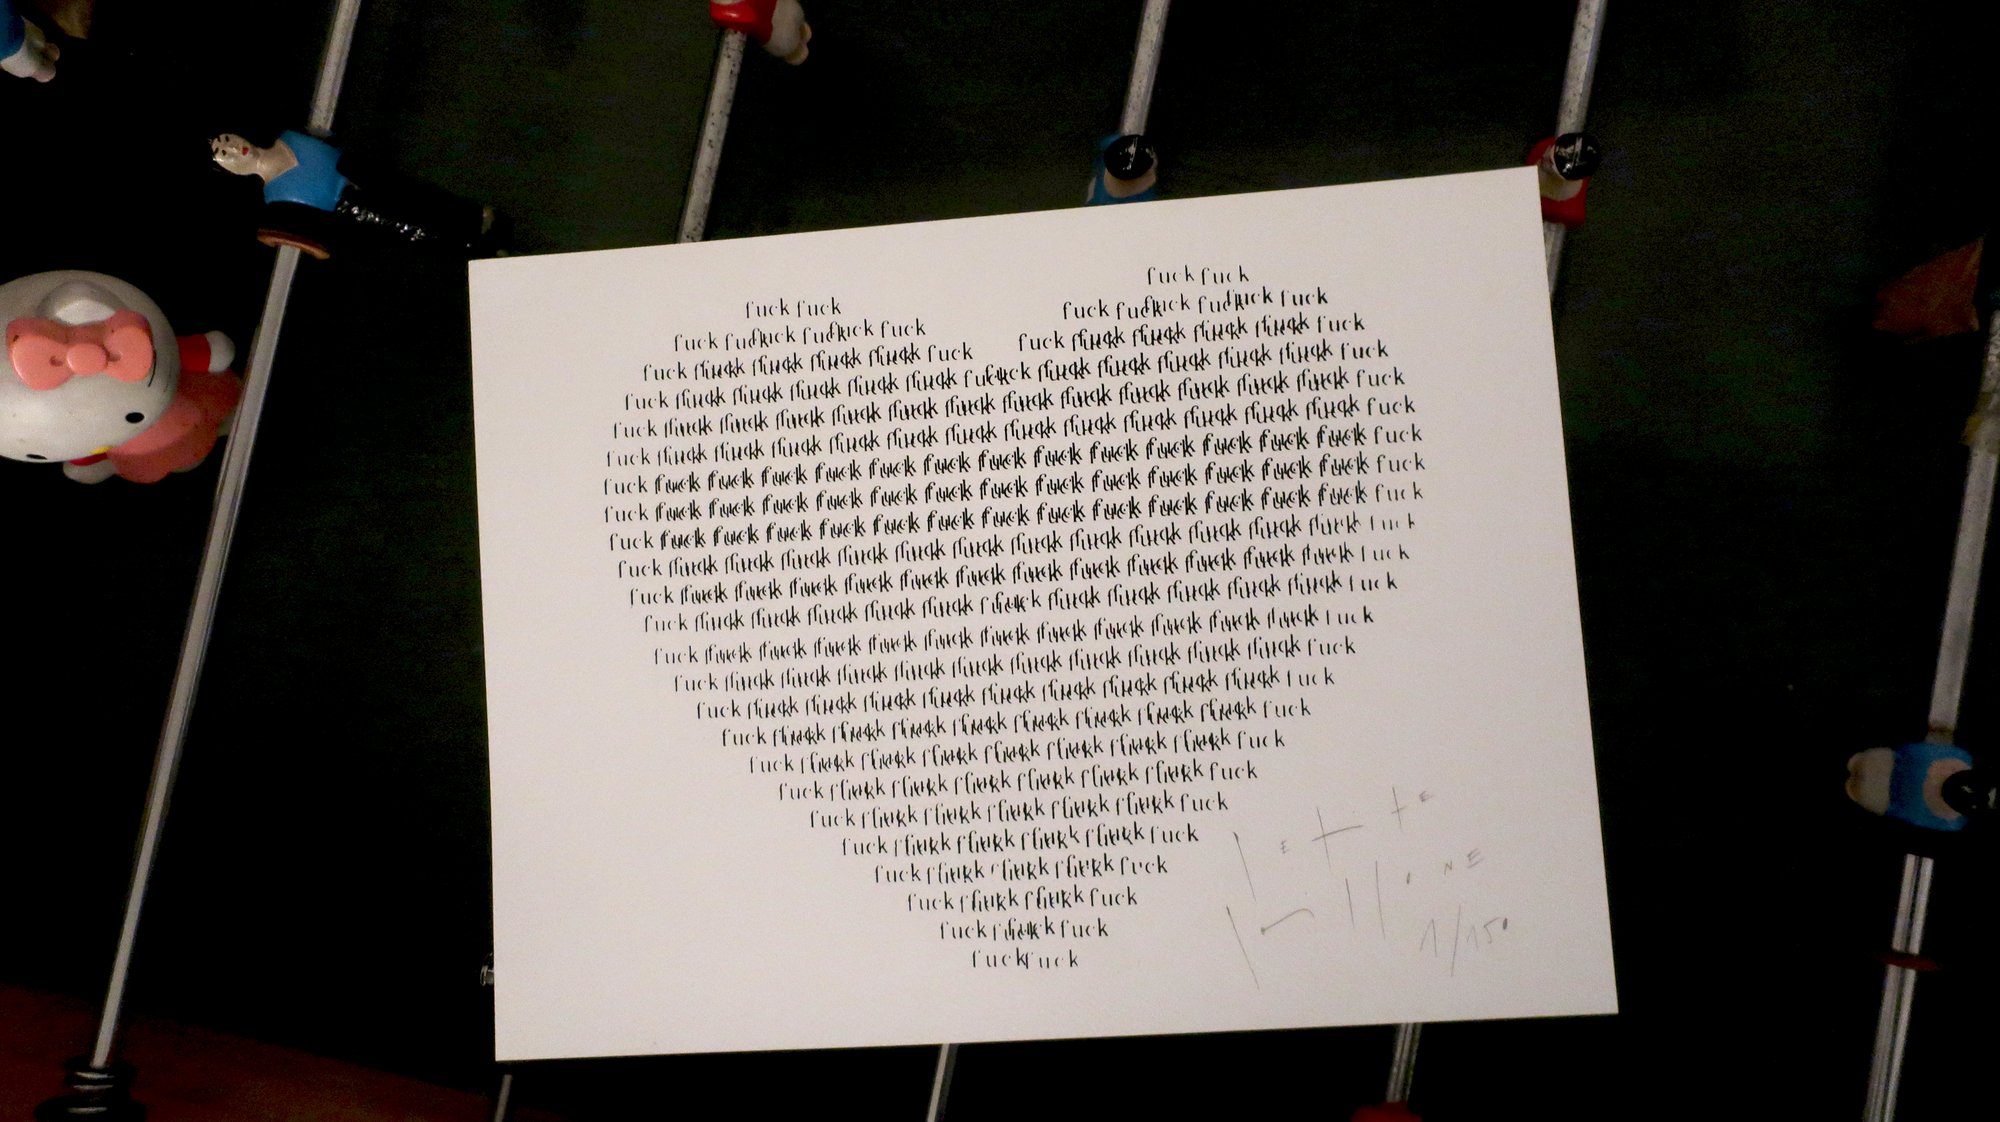 fuck fuck fuck fuck
fuck fuck fuck fuck fuck fuck fuck fuck
fuck fuck fuck fuck fuck fuck fuck fuck fuck fuck fuck fuck
fuck fuck fuck fuck fuck fuck fuck fuck fuck fuck fuck fuck fuck fuck
fuck fuck fuck fuck fuck fuck fuck fuck fuck fuck fuck fuck fuck fuck
fuck fuck fuck fuck fuck fuck fuck fuck fuck fuck fuck fuck fuck fuck
fuck fuck fuck fuck fuck fuck fuck fuck fuck fuck fuck fuck fuck fuck fuck
fuck fuck fuck fuck fuck fuck fuck fuck fuck fuck fuck fuck fuck fuck fuck
fuck fuck fuck fuck fuck fuck fuck fuck fuck fuck fuck fuck fuck fuck fuck
fuck fuck fuck fuck fuck fuck fuck fuck fuck fuck fuck fuck fuck fuck
fuck fuck fuck fuck fuck fuck fuck fuck fuck fuck fuck fuck fuck fuck
fuck fuck fuck fuck fuck fuck fuck fuck fuck fuck fuck fuck fuck
fuck fuck fuck fuck fuck fuck fuck fuck fuck fuck fuck fuck fuck
fuck fuck fuck fuck fuck fuck fuck fuck fuck fuck fuck fuck
fuck fuck fuck fuck fuck fuck fuck fuck fuck fuck fuck
fuck fuck fuck fuck fuck fuck fuck fuck fuck fuck
fuck fuck fuck fuck fuck fuck fuck fuck fuck
fuck fuck fuck fuck fuck fuck fuck fuck
fuck fuck fuck fuck fuck fuck fuck
fuck fuck fuck fuck fuck fuck
fuck fuck fuck fuck fuck
fuck fuck fuck fuck
fuck fuck fuck
fuck fuck
1/150